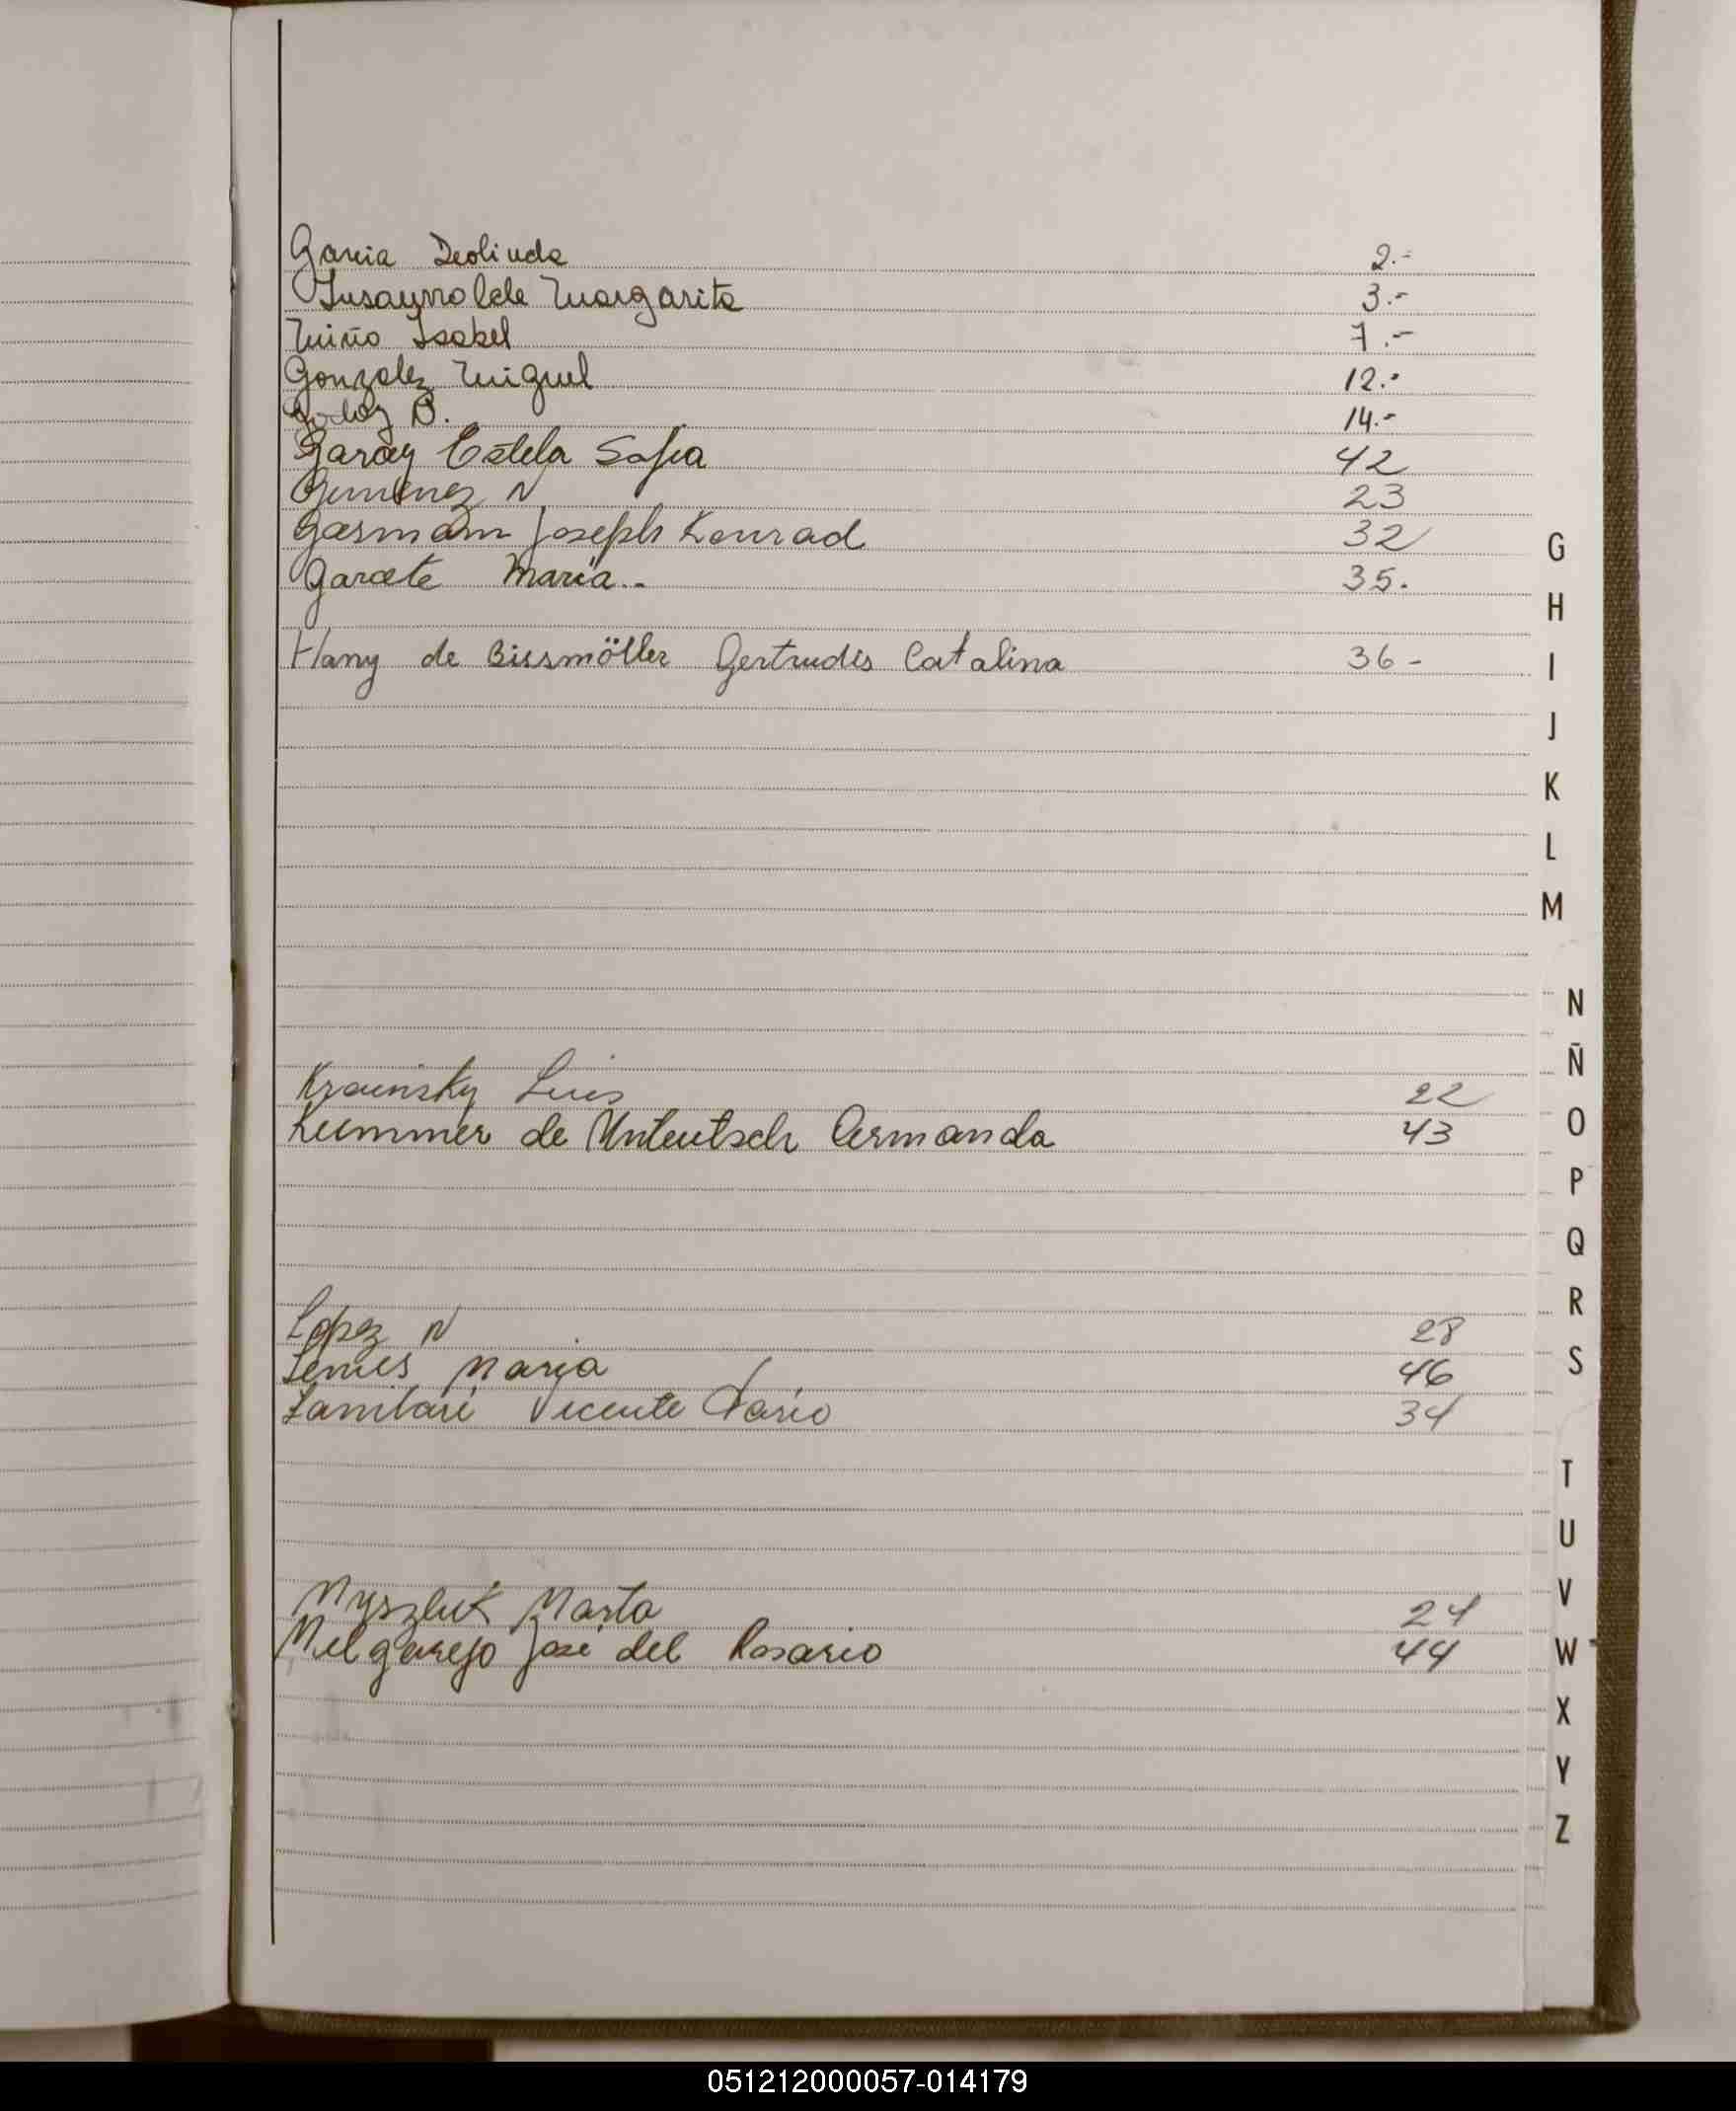 Garcia Deolinda 2.-
Margarita 3.-
Miño Isabel 7.-
Gonzalez Miguel 12.-
Godoy B. 14.-
Garay Estela Sofia 42
Gimenez N 23
Gasmann Joseph Konrad 32
Garcete Maria.- 35.
Hany de Bissmöller Gertrudis Catalina 36-
Krainsky Luis 22
Kummer de Unteutsch Armanda 43
Lopez N 28
Lemes Maria 46
Vicente Dario 34
Myszluk Marta 24
Melgarejo José del Rosario 44
G
H
I
J
K
L
M
N
Ñ
O
P
Q
R
S
T
U
V
W
X
Y
Z
051212000057-014179